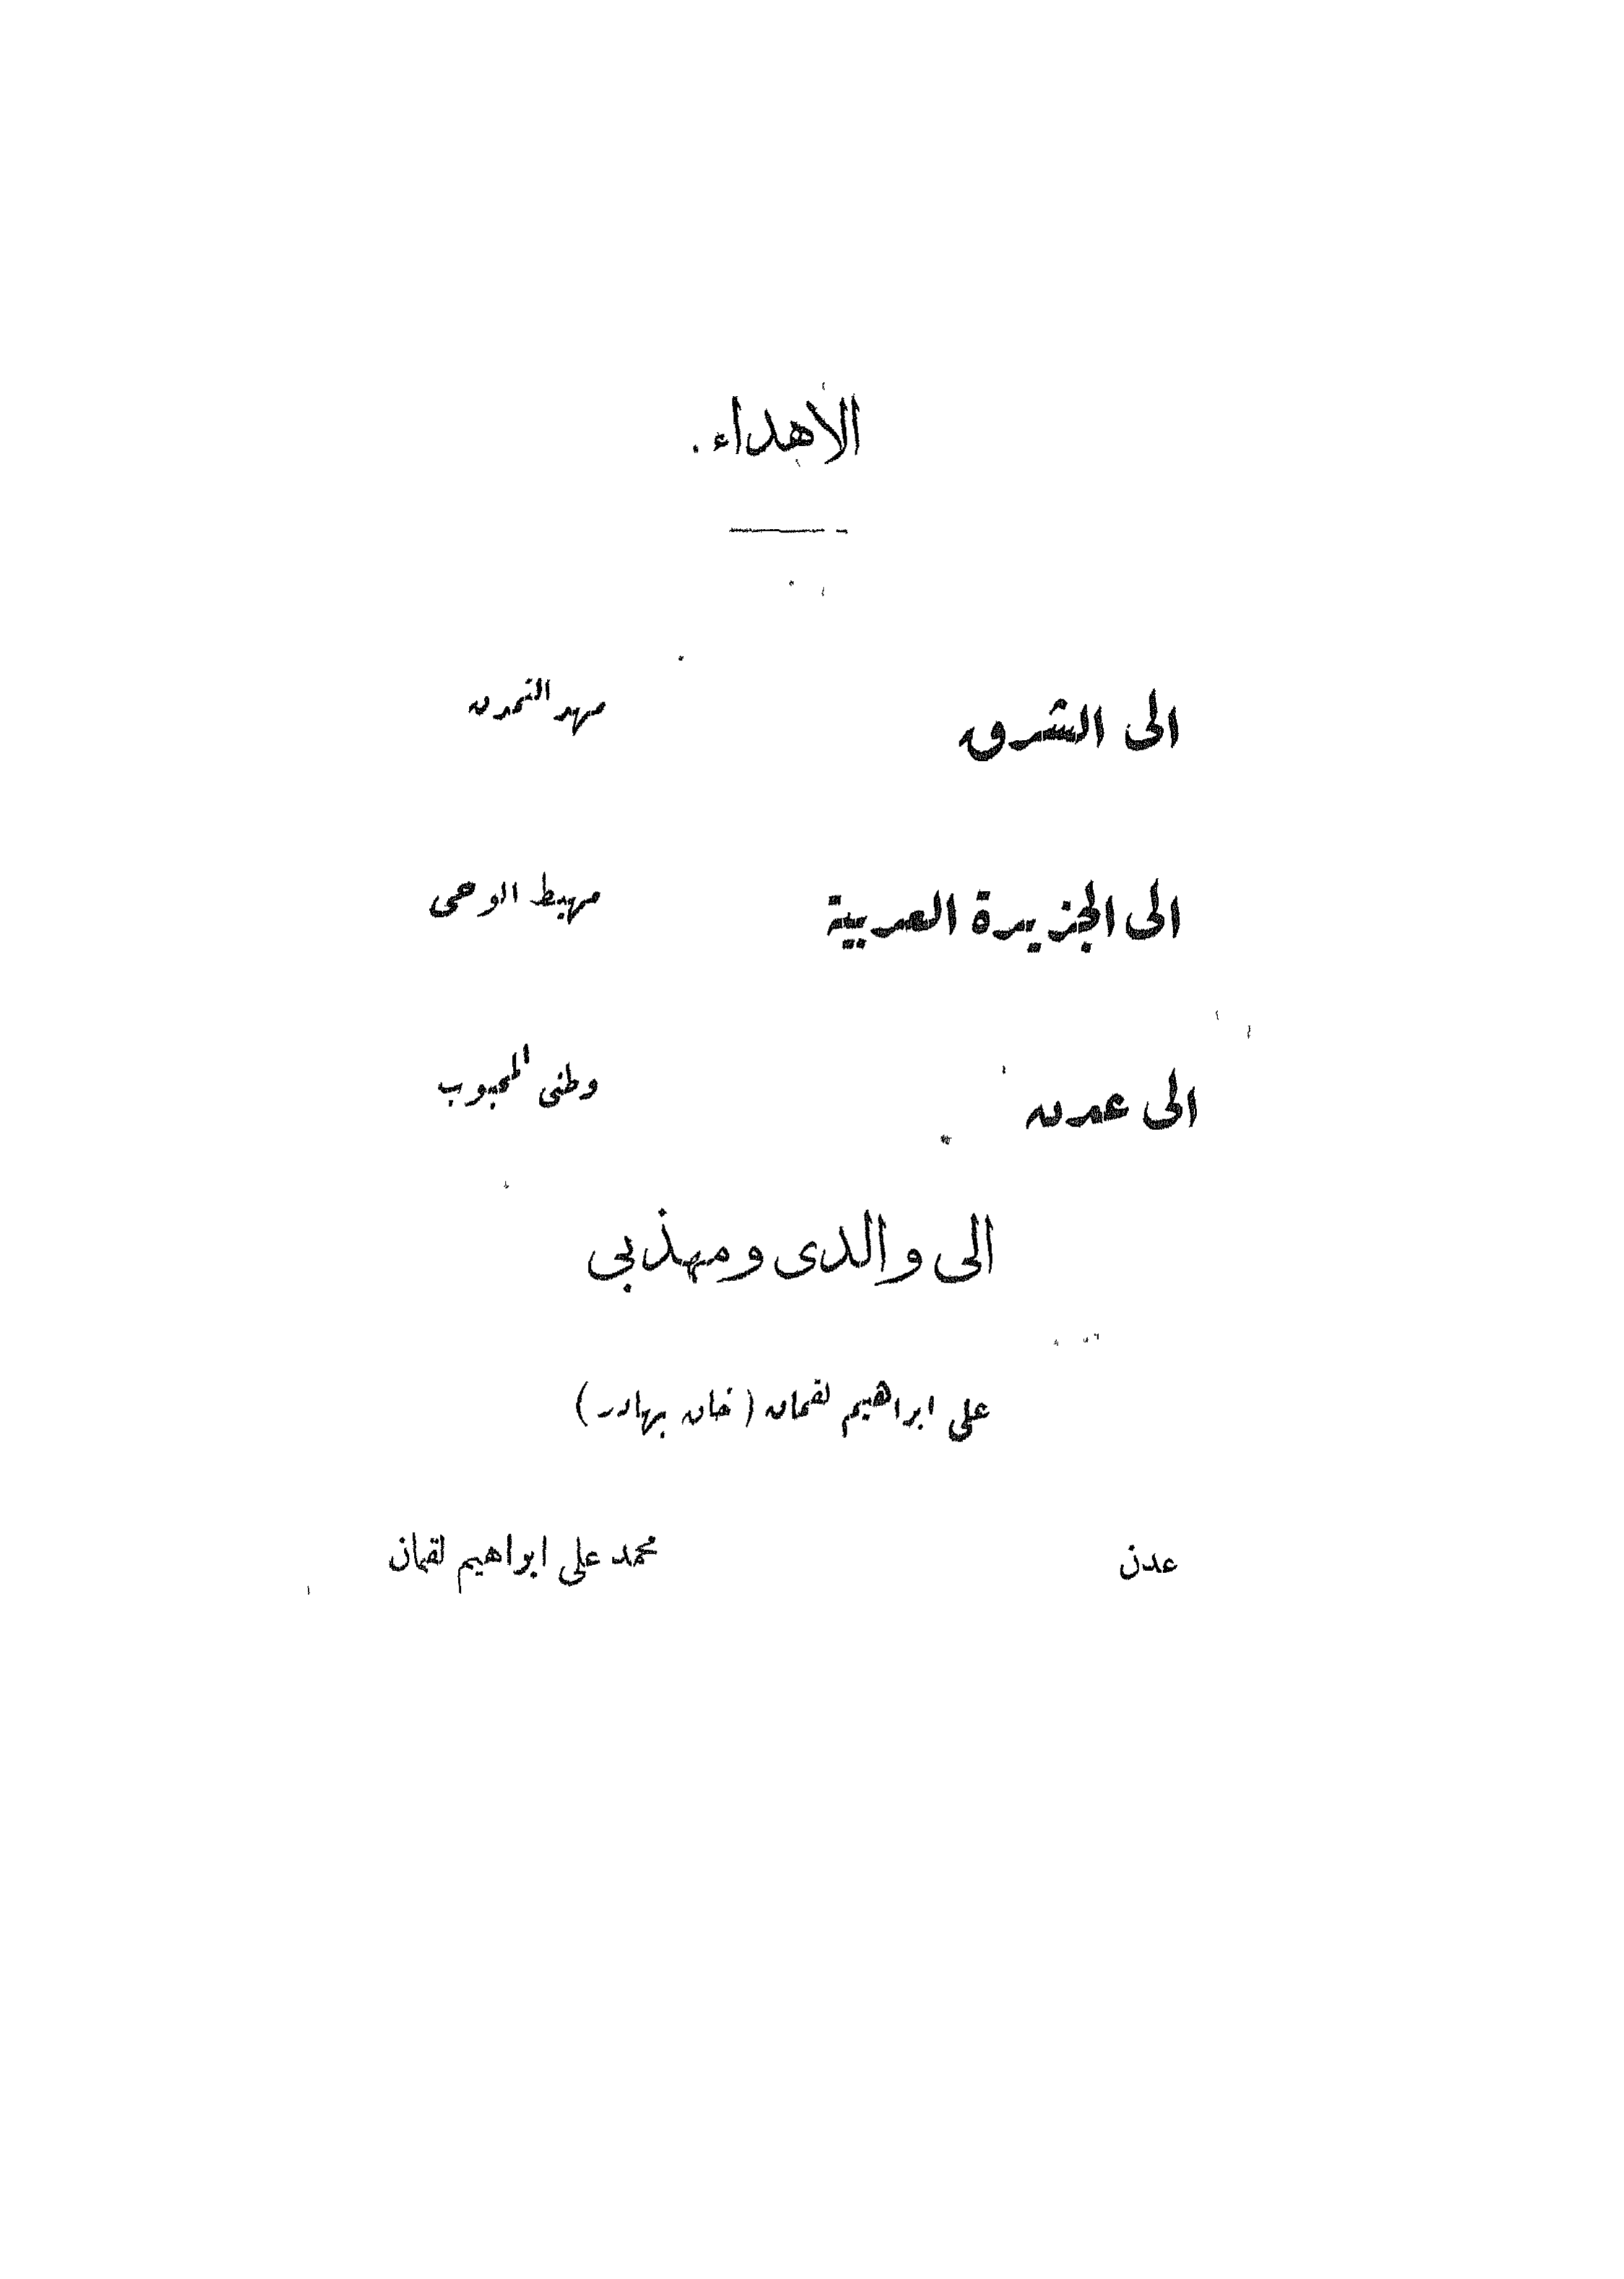 الاهداء.
الى الشرق مهد التمدن
الى الجزيرة العربية مهبط الوحى
الى عدن وطنى المحبوب
الى والدى ومهذبى
على ابراهيم لقمان (خان بهادر)
عدن محمد على ابراهيم لقمان